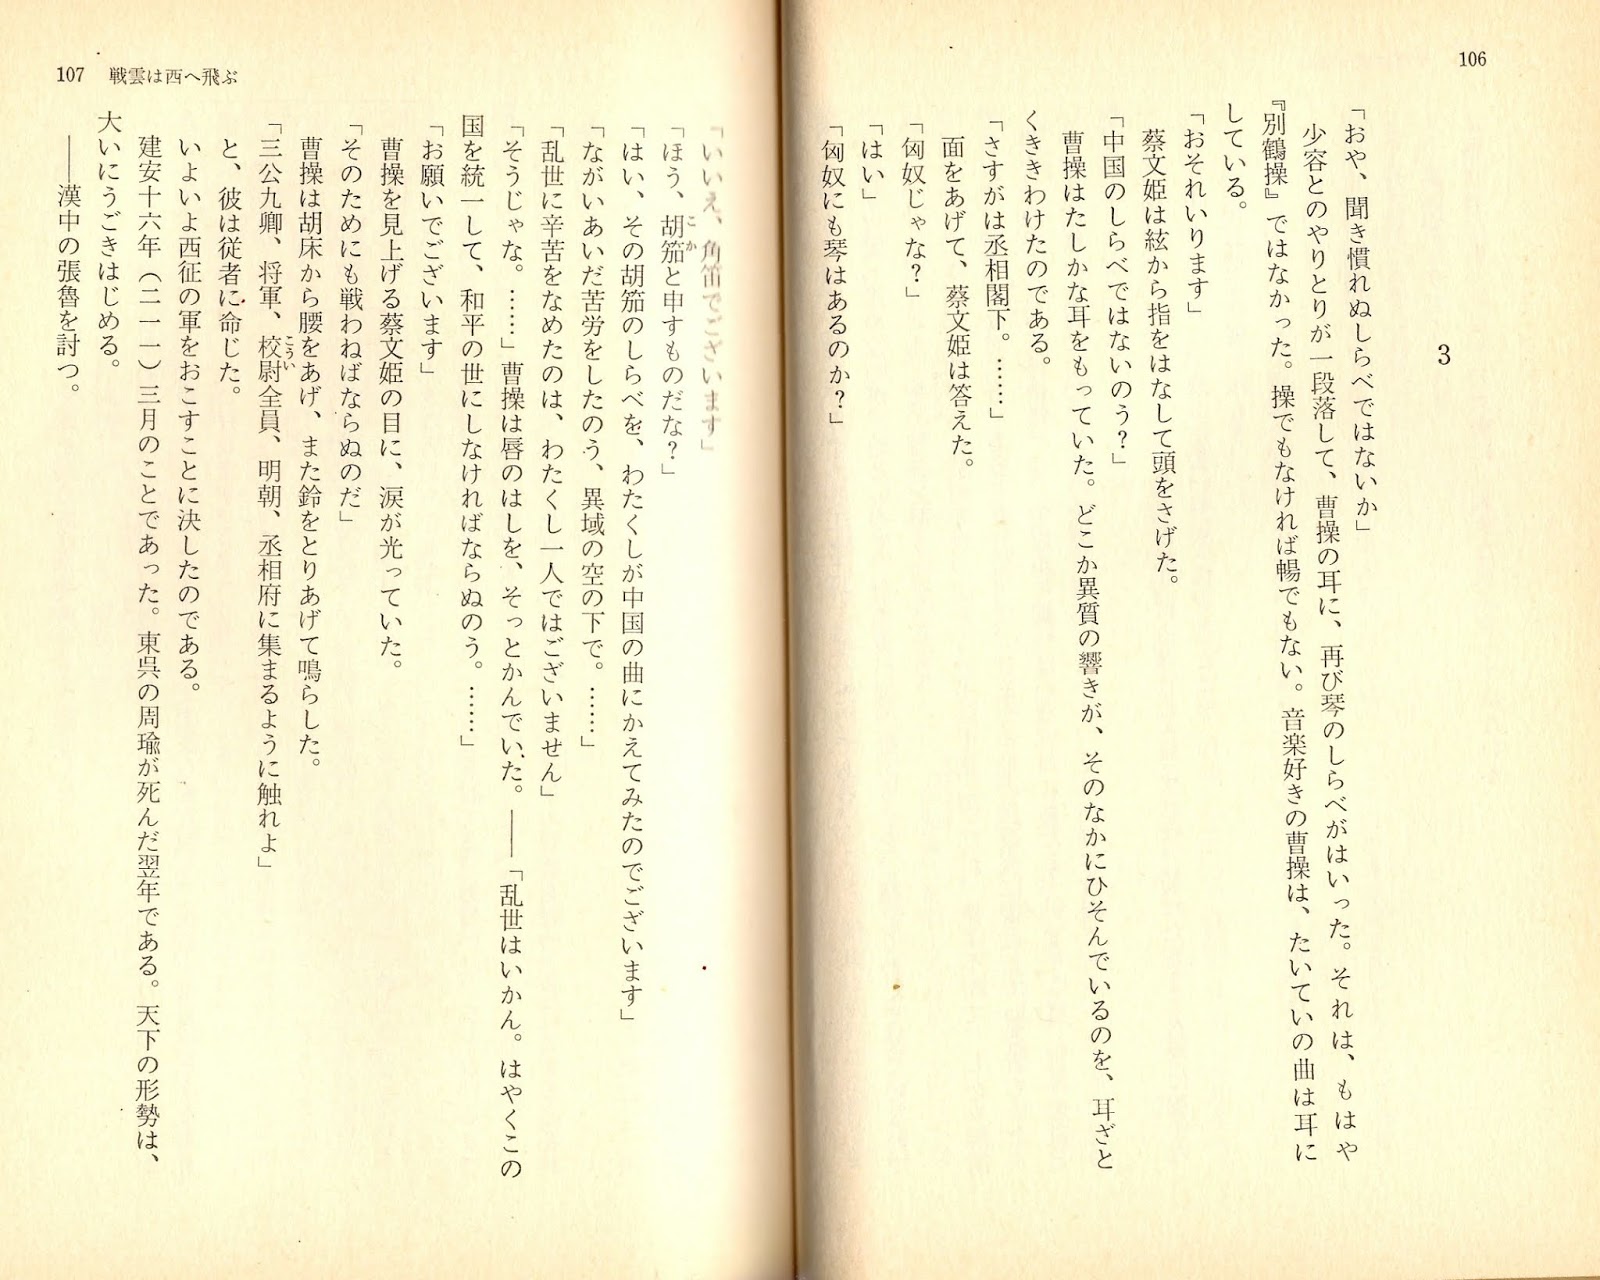 106
3
「おや、聞き慣れぬしらべではないか」
少容とのやりとりが一段落して、曹操の耳に、再び琴のしらべがはいった。それは、もはや
『別鶴操』ではなかった。操でもなければ暢でもない。音楽好きの曹操は、たいていの曲は耳に
している。
「おそれいります」
蔡文姫は絃から指をはなして頭をさげた。
「中国のしらべではないのう？」
曹操はたしかな耳をもっていた。どこか異質の響きが、そのなかにひそんでいるのを、耳ざと
くききわけたのである。
「さすがは丞相閣下。……」
面をあげて、蔡文姫は答えた。
「匈奴じゃな？」
「はい」
「匈奴にも琴はあるのか？」
107 戦雲は西へ飛ぶ
「いいえ、角笛でございます」
「ほう、胡笳と申すものだな？」
こか
「はい、その胡笳のしらべを、わたくしが中国の曲にかえてみたのでございます」
「ながいあいだ苦労をしたのう、異域の空の下で。……」
「乱世に辛苦をなめたのは、わたくし一人ではございません」
「そうじゃな。……」曹操は唇のはしを、そっとかんでいた。――「乱世はいかん。はやくこの
国を統一して、和平の世にしなければならぬのう。……」
「お願いでございます」
曹操を見上げる蔡文姫の目に、涙が光っていた。
「そのためにも戦わねばならぬのだ」
曹操は胡床から腰をあげ、また鈴をとりあげて鳴らした。
「三公九卿、将軍、校尉全員、明朝、丞相府に集まるように触れよ」
こうい
と、彼は従者に命じた。
いよいよ西征の軍をおこすことに決したのである。
建安十六年（二一一）三月のことであった。東呉の周瑜が死んだ翌年である。天下の形勢は、
大いにうごきはじめる。
――漢中の張魯を討つ。